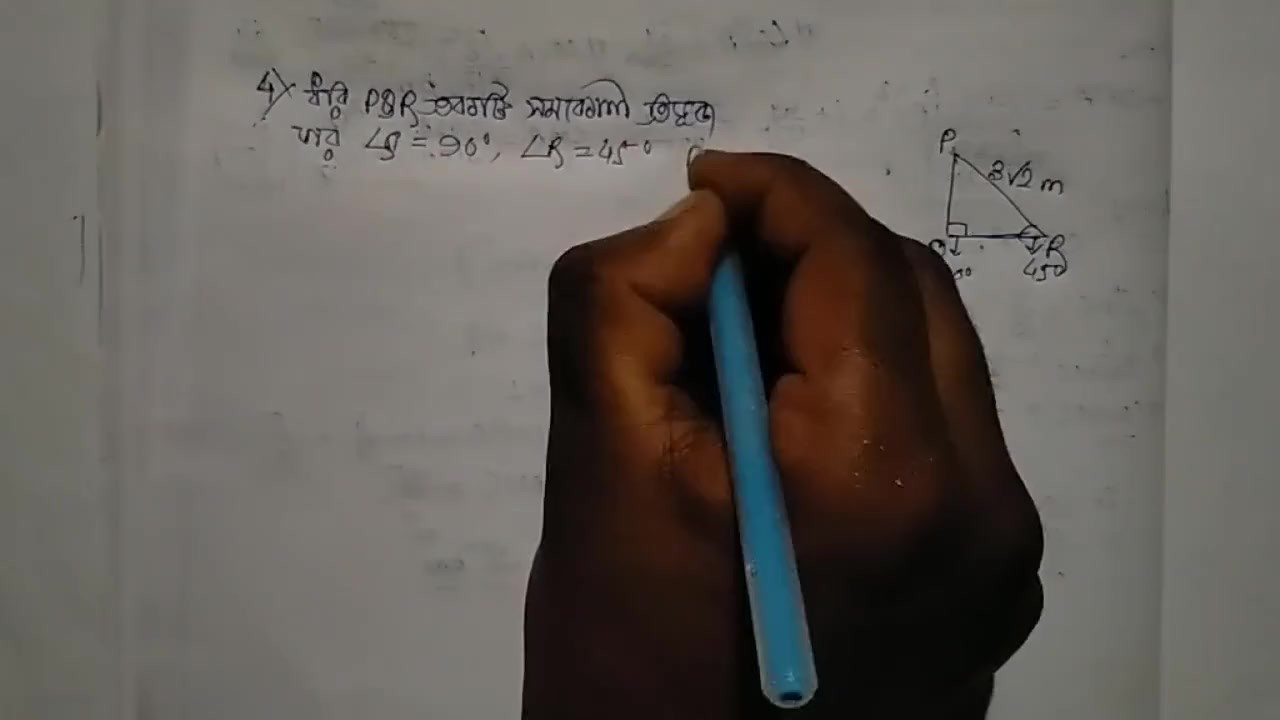 4) ধরি PQR একটি সমকোণী ত্রিভুজ
যার ∠Q = 90°, ∠R = 45°
P
3√2 m
R
45°